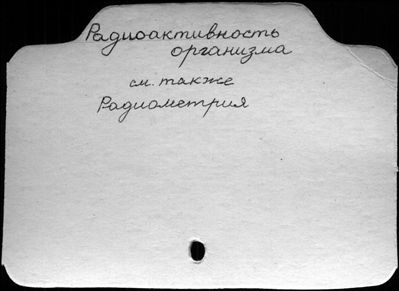 Радиоактивность
организма
см. также
Радиометрия